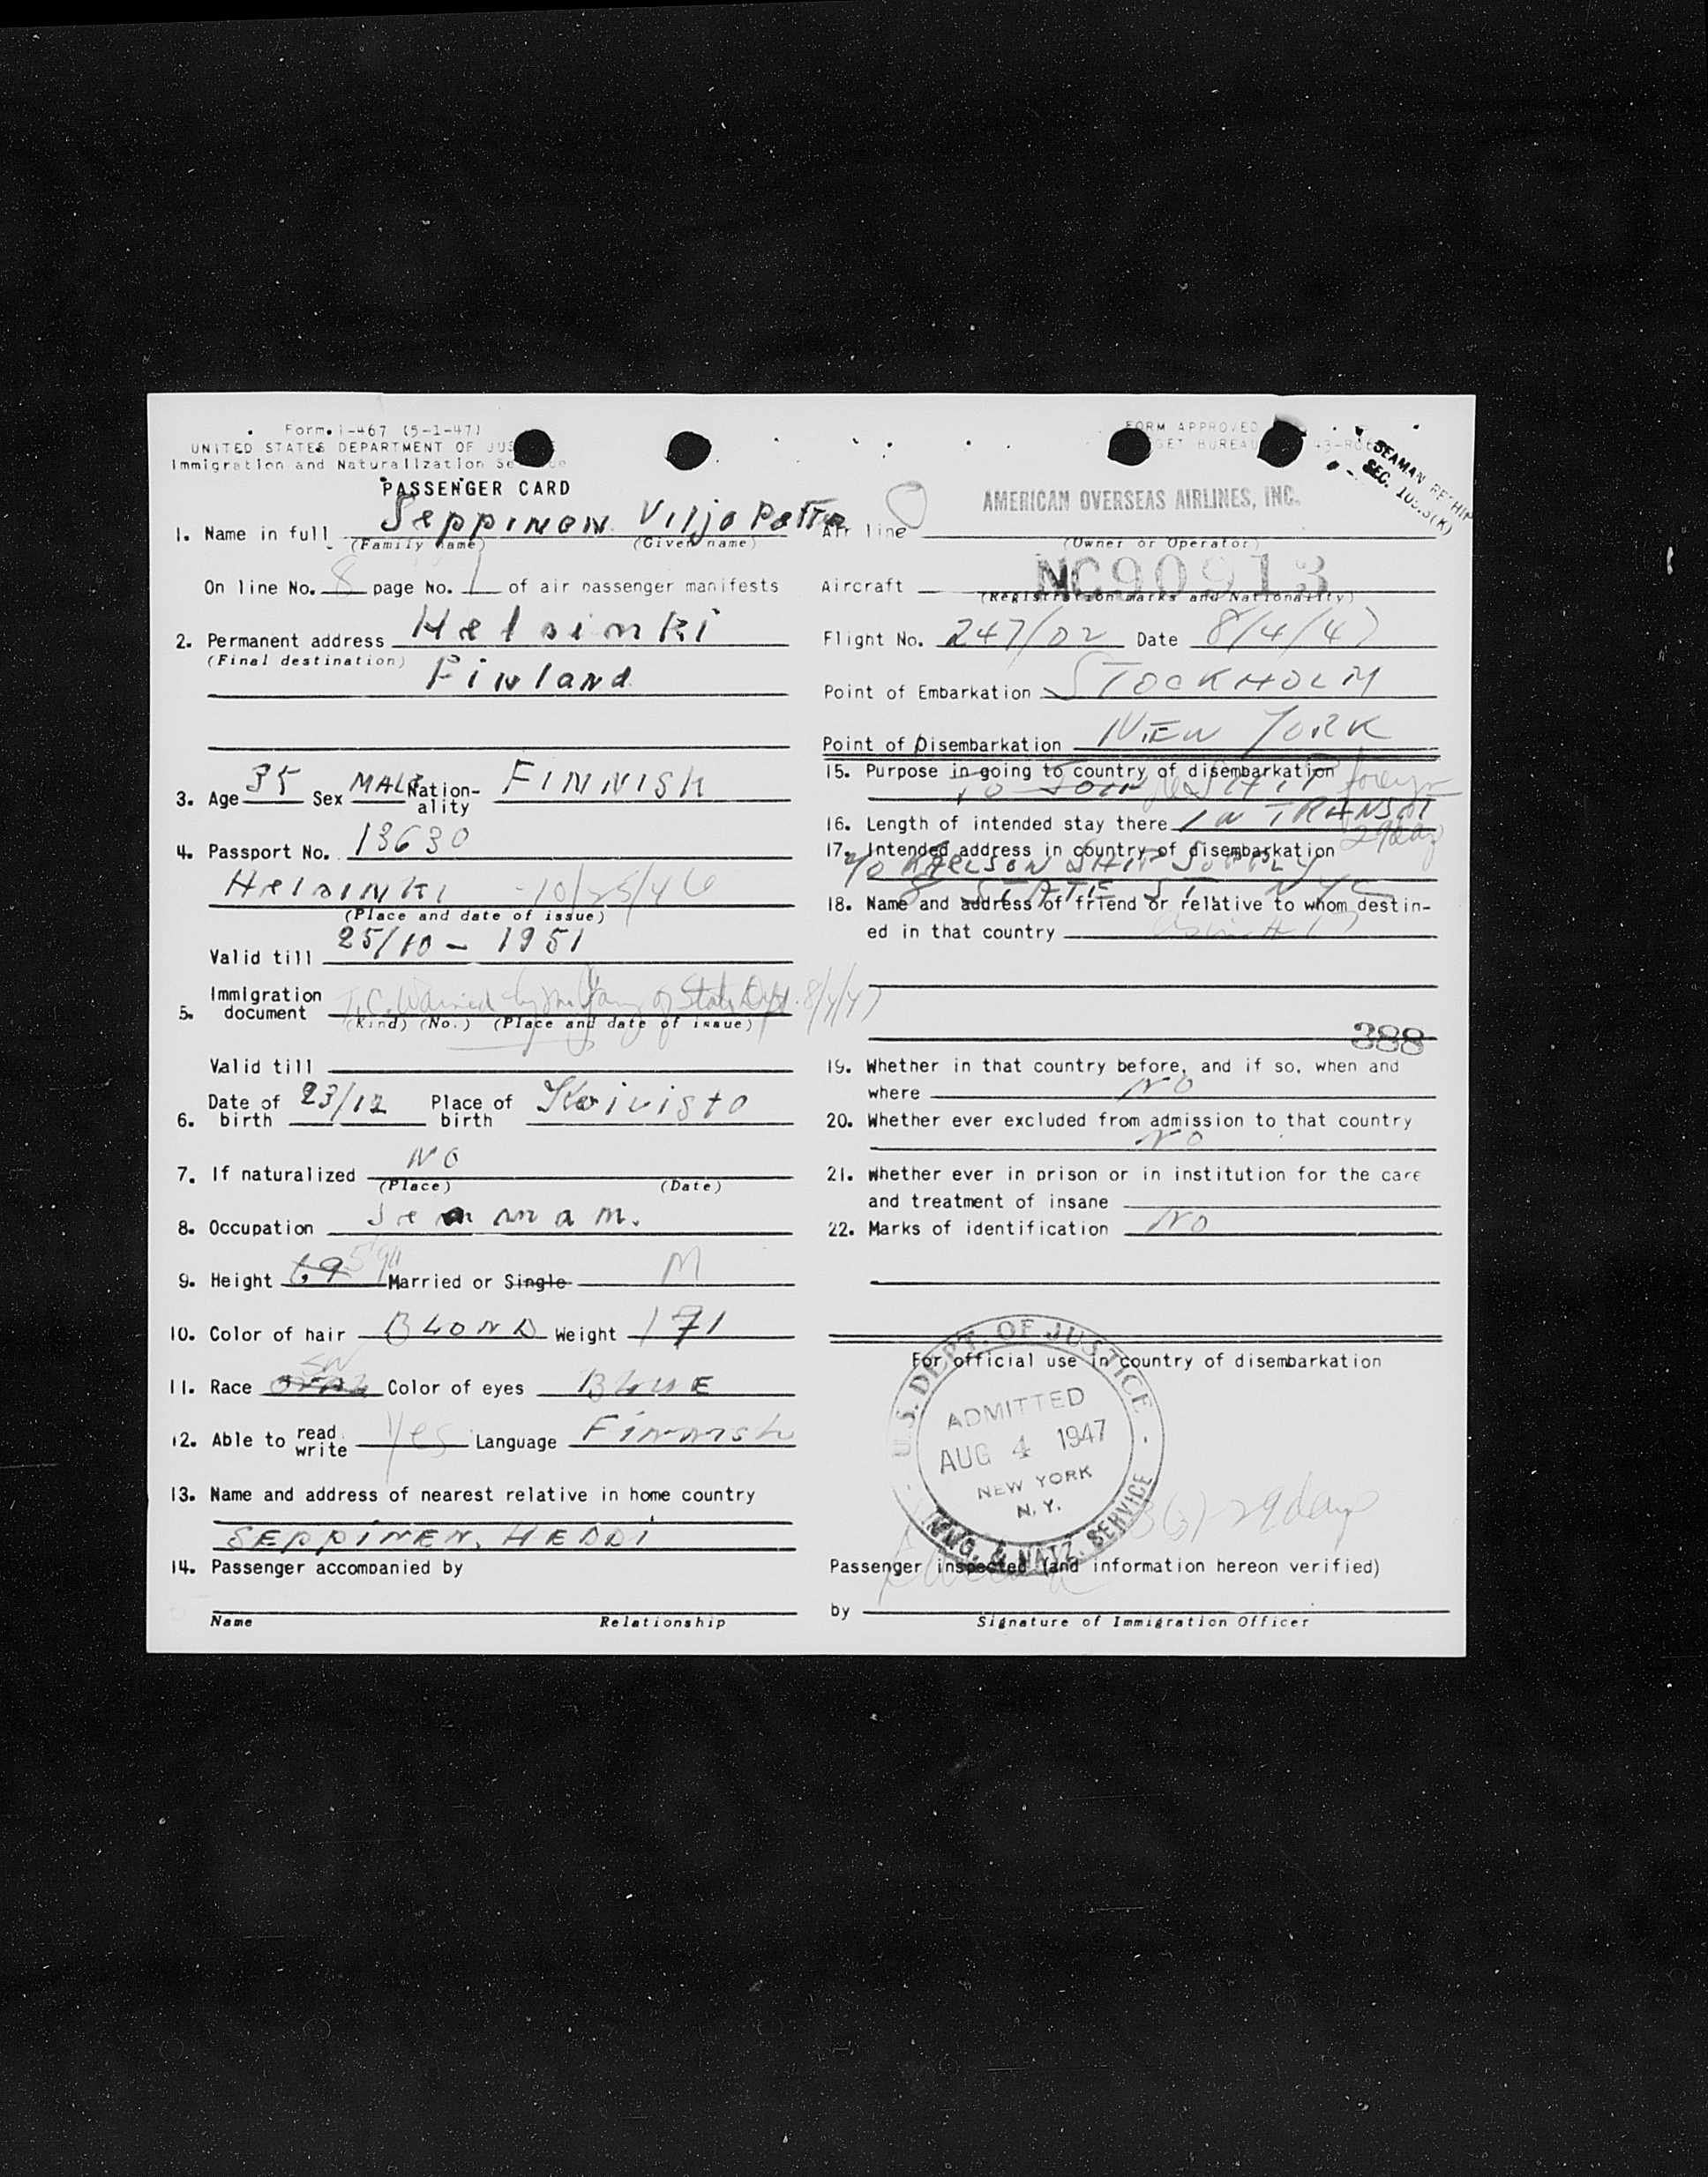 Form I-467 (5-1-47)
UNITED STATES DEPARTMENT OF JUS
Immigration and Naturalization Se
PASSENGER CARD
1. Name in full Seppinen Viljo
(Family name) (Given name)
On line No. 8 page No. 1 of air passenger manifests
2. Permanent address Helsinki
(Final destination) Finland
3. Age 35 Sex MALE Nationality FINNISH
4. Passport No. 13630
HELSINKI 10/25/46
(Place and date of issue)
Valid till 25/10 - 1951
5. Immigration document by of State Dept. 8/4/47
(Kind) (No.) (Place and date of issue)
Valid till
6. Date of birth 23/12 Place of birth Koivisto
7. If naturalized NO
(Place) (Date)
8. Occupation Seaman.
9. Height 69 5'9" Married or Single M
10. Color of hair BLOND Weight 171
11. Race Color of eyes BLUE
12. Able to read write Yes Language Finnish
13. Name and address of nearest relative in home country
SEPPINEN, HEDDI
14. Passenger accompanied by
Name Relationship
FORM APPROVED
GET BUREAU
SEAMAN RESHIP
SEC.
AMERICAN OVERSEAS AIRLINES, INC.
Air line
(Owner or Operator)
Aircraft NC90913
(Registration marks and Nationality)
Flight No. 247/02 Date 8/4/47
Point of Embarkation STOCKHOLM
Point of Disembarkation NEW YORK
15. Purpose in going to country of disembarkation
TO JOIN SHIP foreign
16. Length of intended stay there IN TRANSIT
29 days
17. Intended address in country of disembarkation
c/o KARLSON SHIP SUPPLY
8 STATE ST. NYC
18. Name and address of friend or relative to whom destin-
ed in that country
388
19. Whether in that country before, and if so, when and
where NO
20. Whether ever excluded from admission to that country
NO
21. Whether ever in prison or in institution for the care
and treatment of insane
22. Marks of identification NO
For official use in country of disembarkation
U.S. DEPT. OF JUSTICE
ADMITTED
AUG 4 1947
NEW YORK
N.Y.
IMMG. & NATZ. SERVICE
29 days
Passenger inspected (and information hereon verified)
by
Signature of Immigration Officer